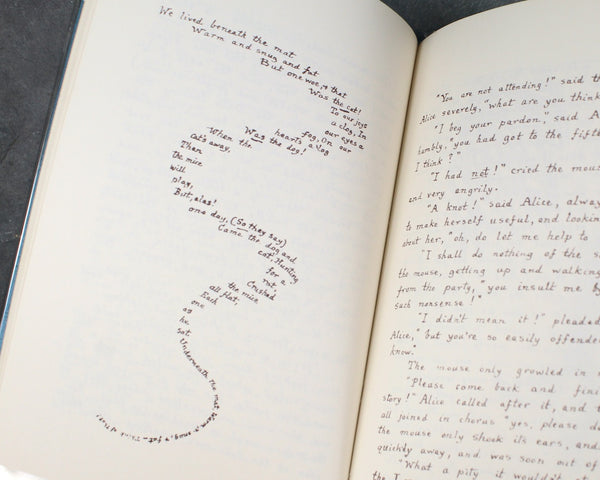 We lived beneath the mat
Warm and snug and fat
But one woe, & that
Was the cat!
To our joys
a clog, In
our eyes a
fog, On our
hearts a log
Was the dog!
When the
cat's away,
Then
the mice
will
play,
But, alas!
one day, (So they say)
Came the dog and
cat, Hunting
for a
rat,
Crushed
the mice
all flat,
Each
one
as
he
sat
Underneath the mat, Warm, & snug, & fat - Think of that!
"You are not attending!" said th
Alice severely, "what are you think
"I beg your pardon," said A
humbly, "you had got to the fifte
I think?"
"I had not!" cried the mous
and very angrily.
"A knot!" said Alice, alway
to make herself useful, and lookin
about her, "oh, do let me help to
"I shall do nothing of the s
the mouse, getting up and walking
from the party, "you insult me by
such nonsense!"
"I didn't mean it!" pleaded
Alice, "but you're so easily offended
know."
The mouse only growled in r
"Please come back and fini
story!" Alice called after it, and t
all joined in chorus "yes, please do
the mouse only shook its ears, and
quickly away, and was soon out of
"What a pity it wouldn't st